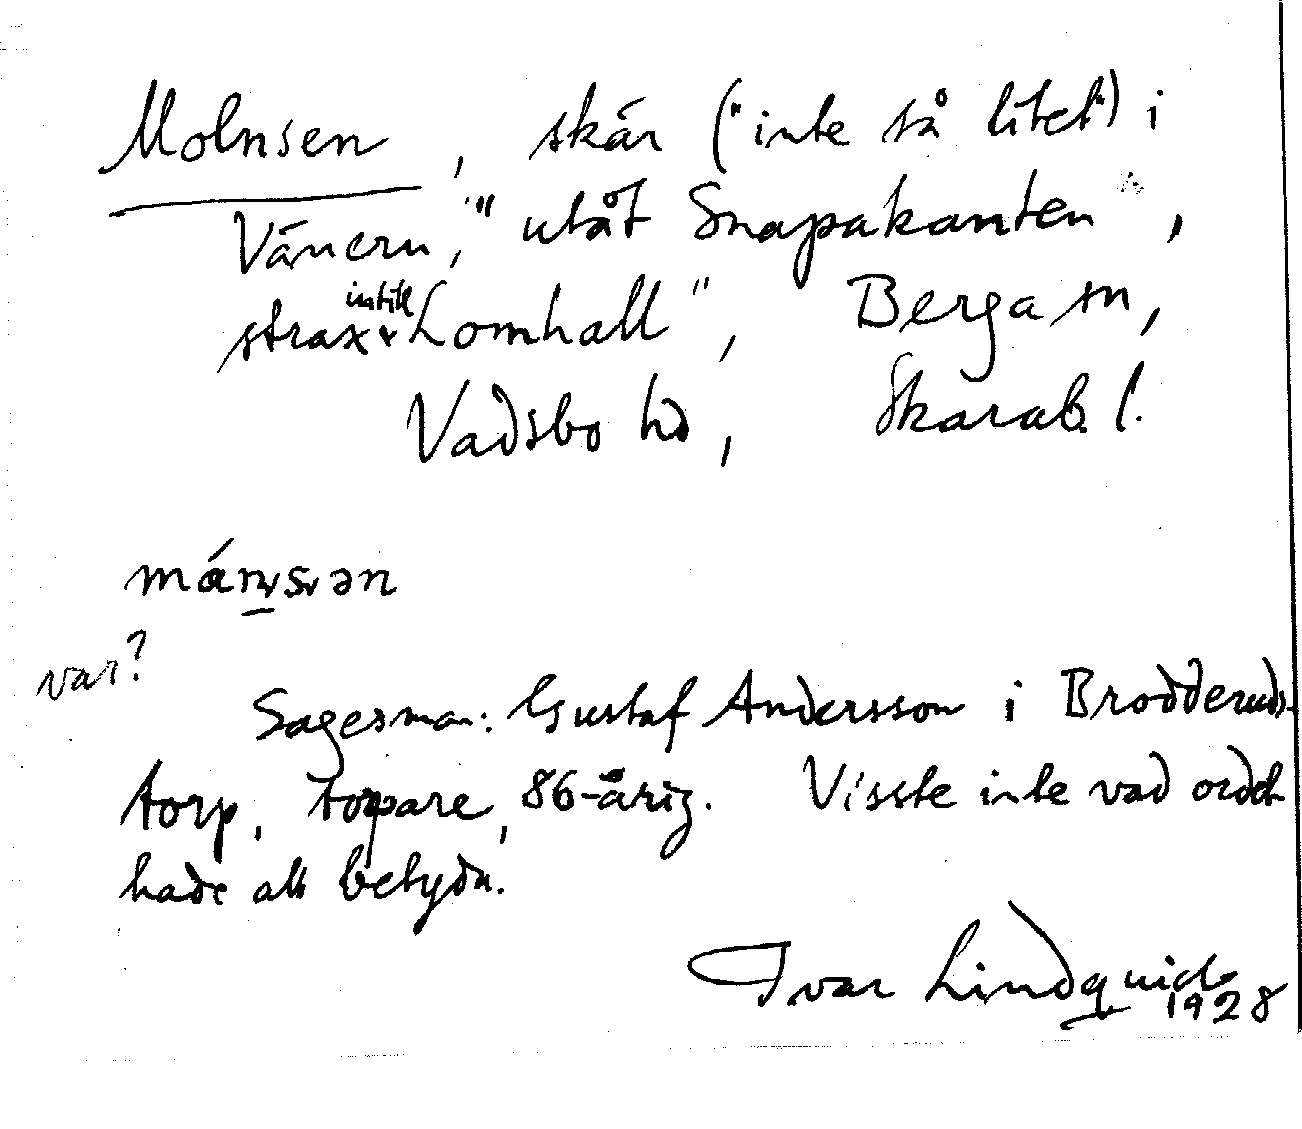 Molnsen, skär ("inte så litet") i
Vänern, "utåt Snapakanten",
strax intill Lomhall", Berga sn,
Vadsbo hd, Skarab. l.
var?
Sagesman: Gustaf Andersson i Brodderuds-
torp, torpare, 86-årig. Visste inte vad ordet
hade att betyda.
Ivar Lindquist
1928